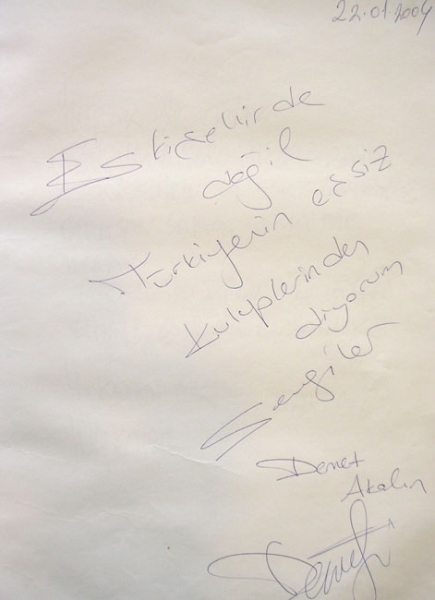 22.01.2004
Eskişehirde
değil
Türkiyenin eşsiz
kulüplerinden
diyorum
Sevgiler
Demet
Akalın
Demet